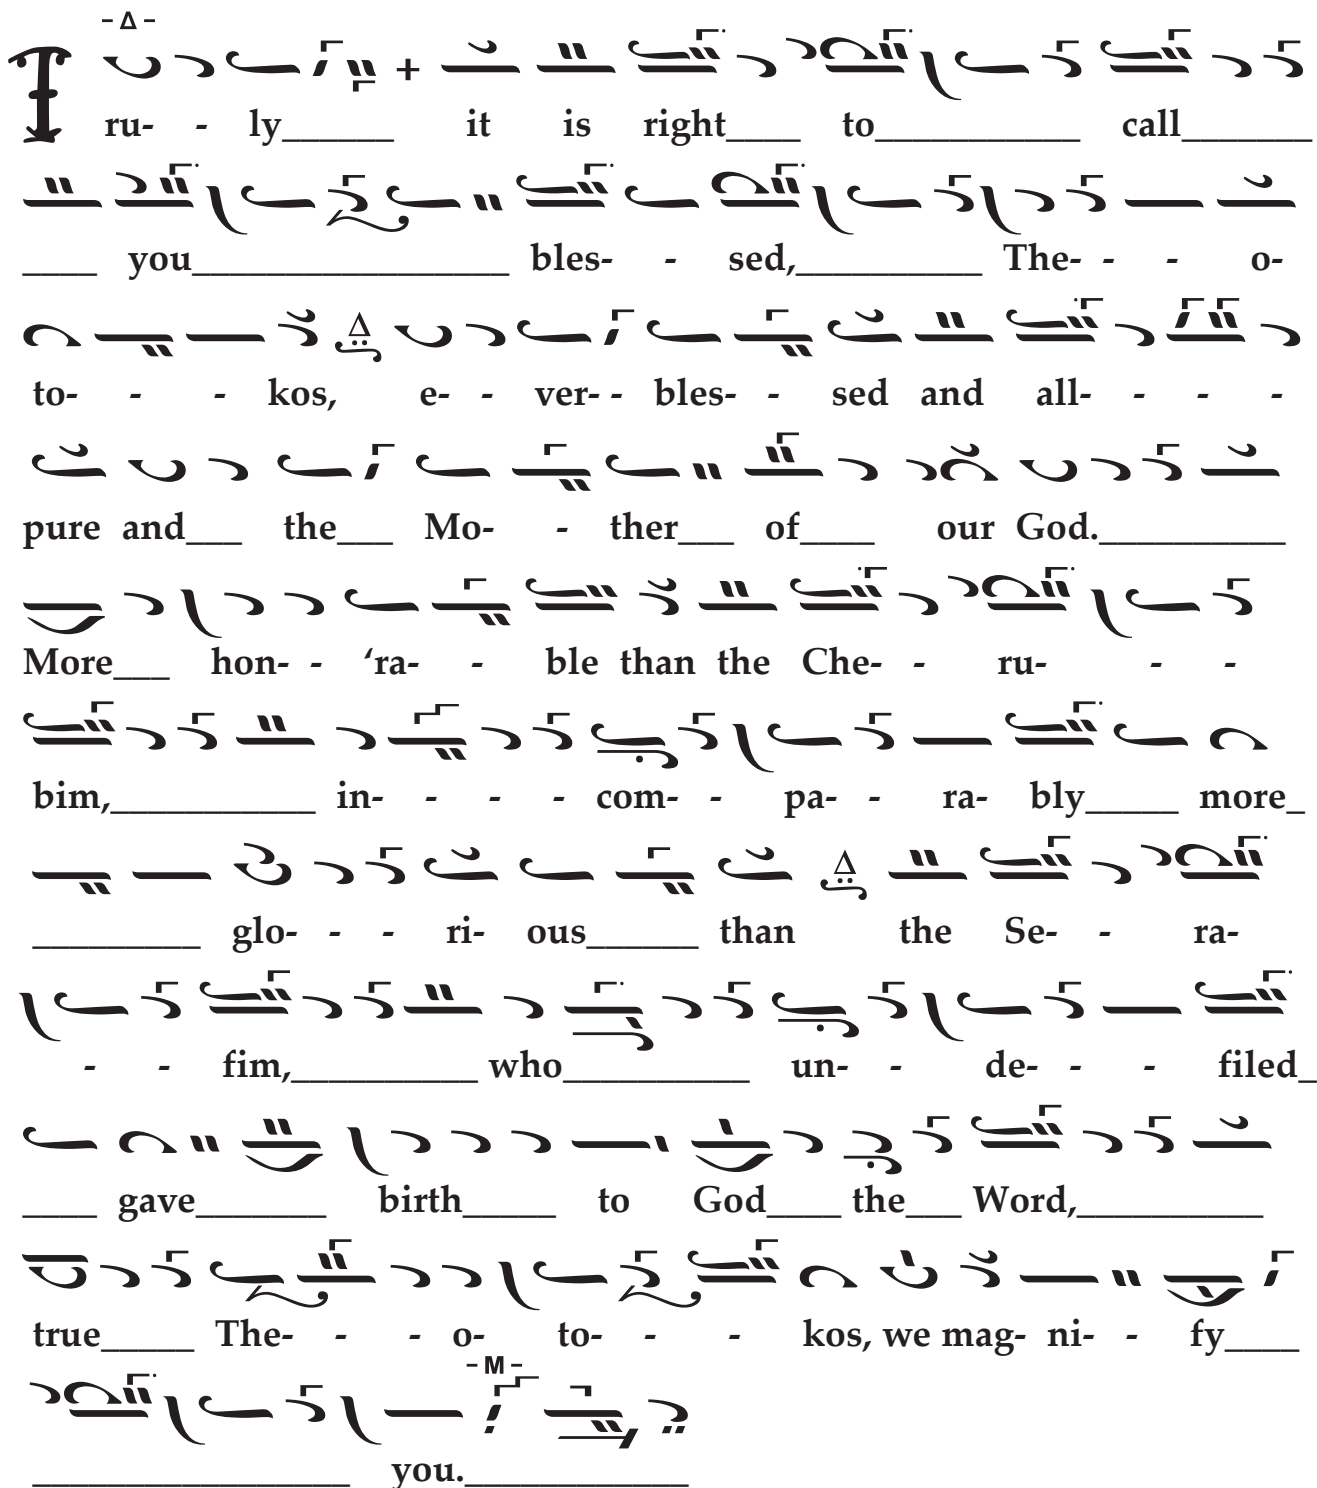 - Δ -
Tru- - ly______ it is right____ to___________ call_______
____ you_________________ bles- - sed,__________ The- - - o-
Δ
to- - - kos, e- - ver- - bles- - sed and all- - - -
pure and___ the___ Mo- - ther___ of____ our God.__________
More___ hon- - ‘ra- - ble than the Che- - ru- - -
bim,___________ in- - - - com- - pa- - ra- bly_____ more_
Δ
_________ glo- - - ri- ous______ than the Se- - ra-
- - fim,__________ who__________ un- - de- - - filed_
____ gave_______ birth_____ to God____ the___ Word,__________
true_____ The- - - o- to- - - kos, we mag- ni- - fy____
- M -
_________________ you.____________